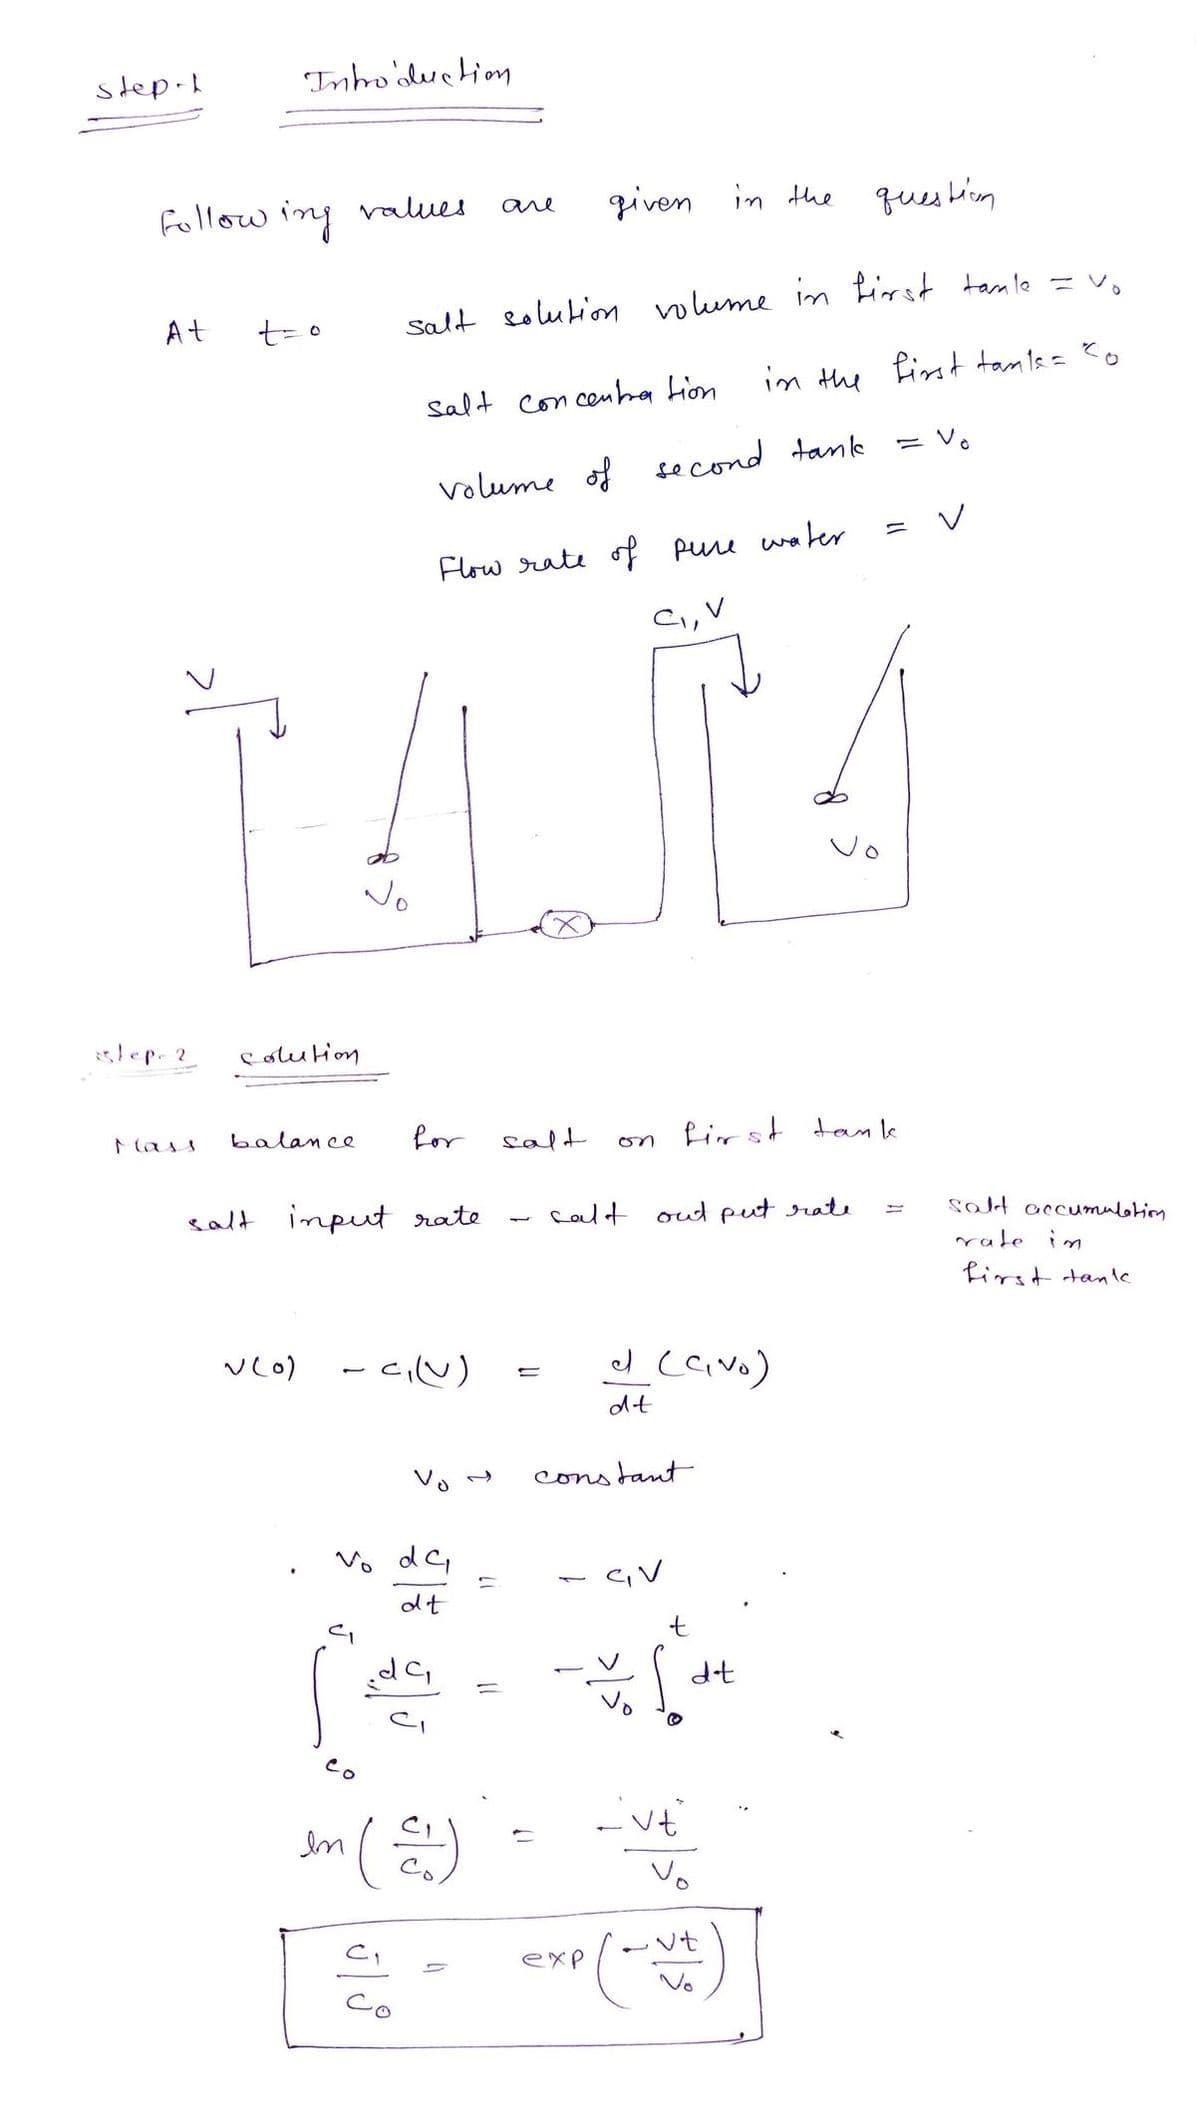 step-1 Introduction
Following values are given in the question
At t=0 salt solution volume in first tank = V₀
salt concentration in the first tank = C₀
volume of second tank = V₀
Flow rate of pure water = V
C₁, V
V
V₀
V₀
step-2 solution
Mass balance for salt on first tank
salt input rate - salt out put rate = salt accumulation
rate in
first tank
V(0) - C₁(V) = d/dt (C₁V₀)
V₀ → constant
V₀ dC₁/dt = - C₁V
∫_{C₀}^{C₁} dC₁/C₁ = -V/V₀ ∫₀^t dt
ln(C₁/C₀) = -Vt/V₀
C₁/C₀ = exp(-Vt/V₀)